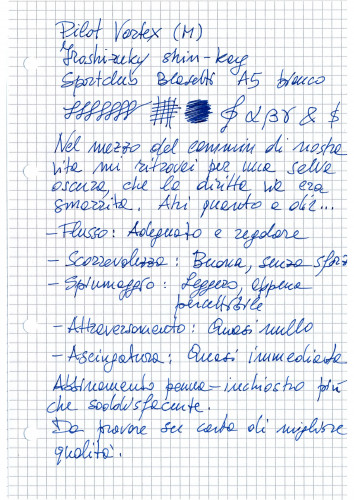 Pilot Vortex (M)
Iroshizuky shin-kay
Sportclub Blasetti A5 bianco
αβγ & $
Nel mezzo del cammin di nostra
vita mi ritrovai per una selva
oscura, che la diritta via era
smarrita. Ahi quanto a dir...
- Flusso: Adeguato e regolare
- Scorrevolezza: Buona, senza sforzi
- Spiumaggio: Leggero, appena
percettibile
- Attraversamento: Quasi nullo
- Asciugatura: Quasi immediata
Abbinamento penna-inchiostro più
che soddisfacente.
Da provare su carta di migliore
qualità.